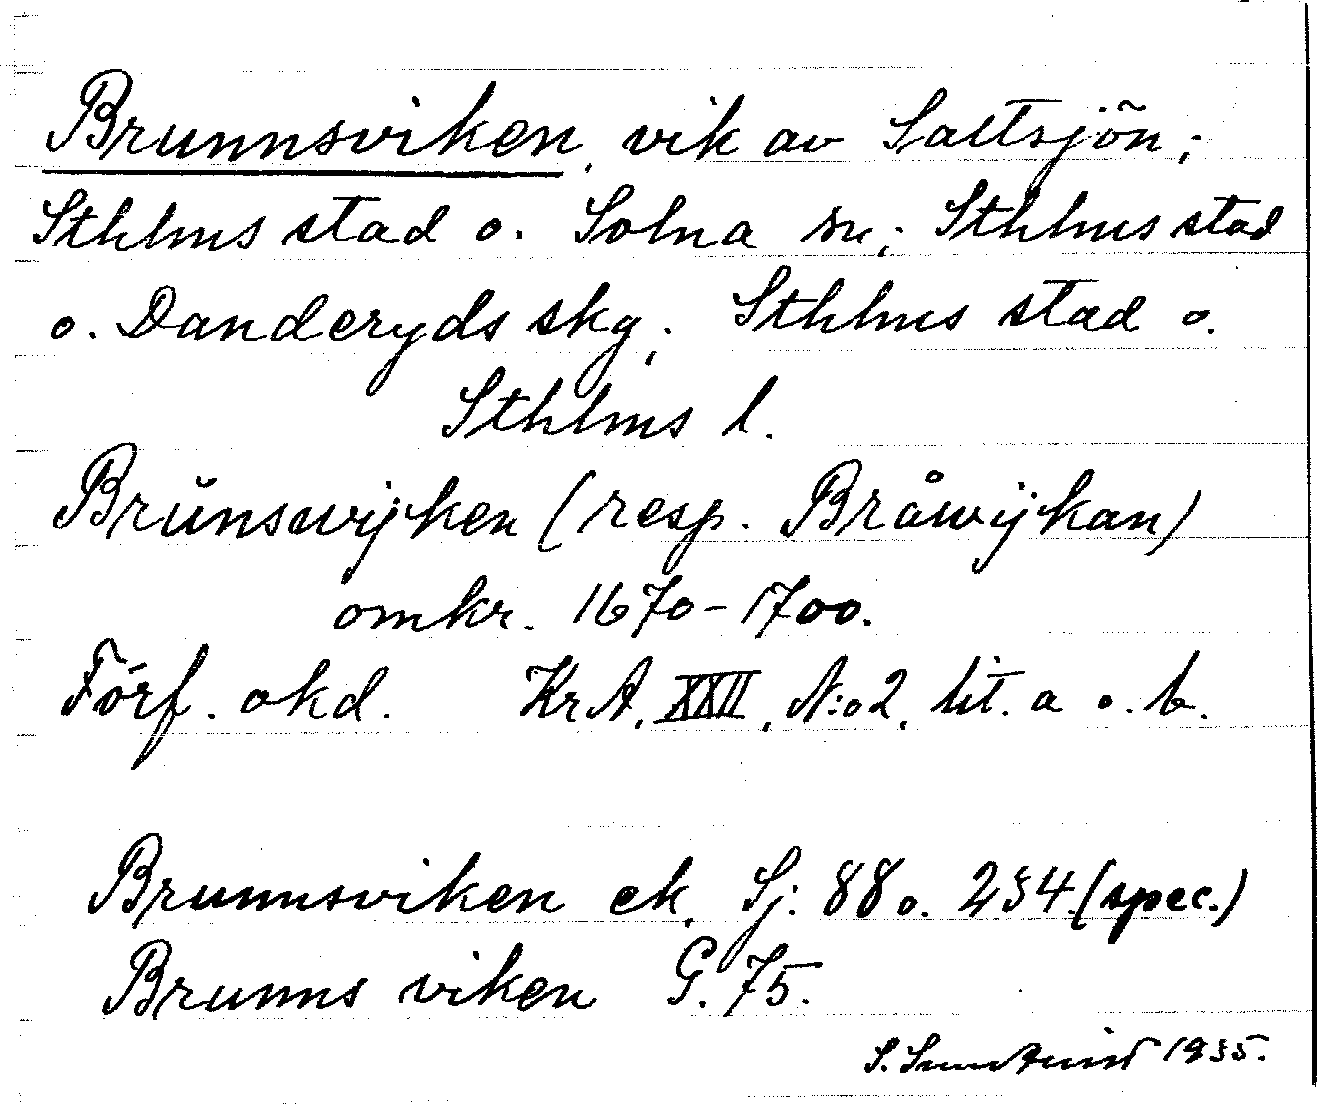 Brunnsviken, vik av Saltsjön;
Sthlms stad o. Solna sn; Sthlms stad
o. Danderyds skg, Sthlms stad o.
Sthlms l.
Brŭnswijken (resp. Bråwijkan)
omkr. 1670-1700.
Förf. okd. Kr A, XXII, N:o 2, lit. a o. b.
Brunnsviken ek, Sj. 88 o. 234 (spec.)
Brunns viken G. 75.
S. 1935.